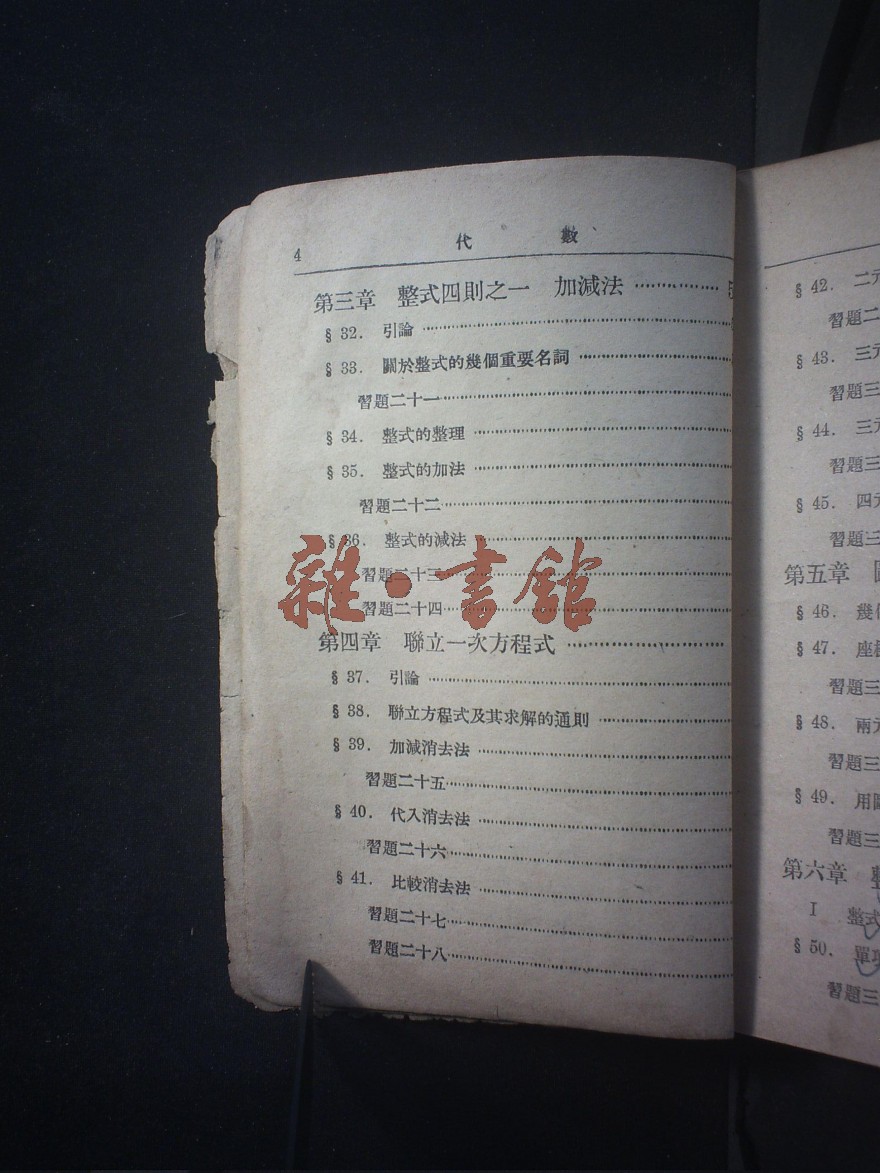 4
代 數
第三章 整式四則之一 加減法
§ 32. 引論
§ 33. 關於整式的幾個重要名詞
習題二十一
§ 34. 整式的整理
§ 35. 整式的加法
習題二十二
§ 36. 整式的減法
習題二十三
習題二十四
雜·書館
第四章 聯立一次方程式
§ 37. 引論
§ 38. 聯立方程式及其求解的通則
§ 39. 加減消去法
習題二十五
§ 40. 代入消去法
習題二十六
§ 41. 比較消去法
習題二十七
習題二十八
§ 42. 二元
習題二
§ 43. 三元
習題三
§ 44. 三元
習題三
§ 45. 四元
習題三
第五章
§ 46. 幾個
§ 47. 座
習題三
§ 48. 兩元
習題三
§ 49. 用
習題三
第六章 整
I 整式
§ 50. 單項
習題三